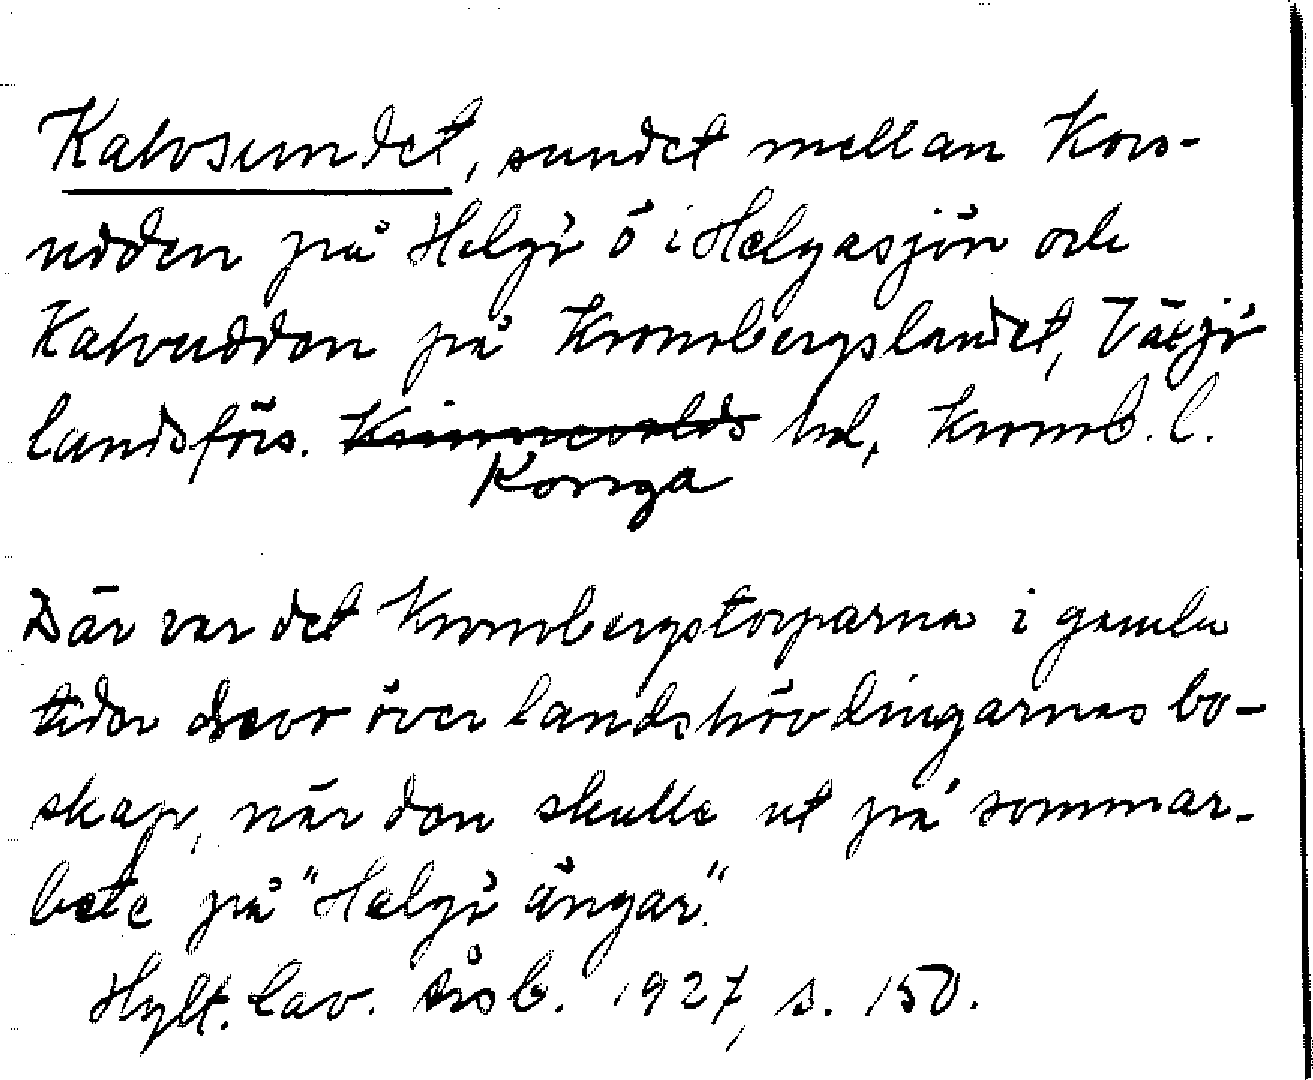 Kalvsundet, sundet mellan Kors-
udden på Helgö ö i Helgasjön och
Kalvudden på Kronobergslandet, Växjö
landsförs. Kinnevalds hd, Kronob. l.
Konga
Där var det Kronobergstorparna i gamla
tider drevo över landshövdingarnas bo-
skap, när den skulle ut på sommar-
bete på "Helgö ängar".
Hylt. Cav. årsb. 1927, s. 150.